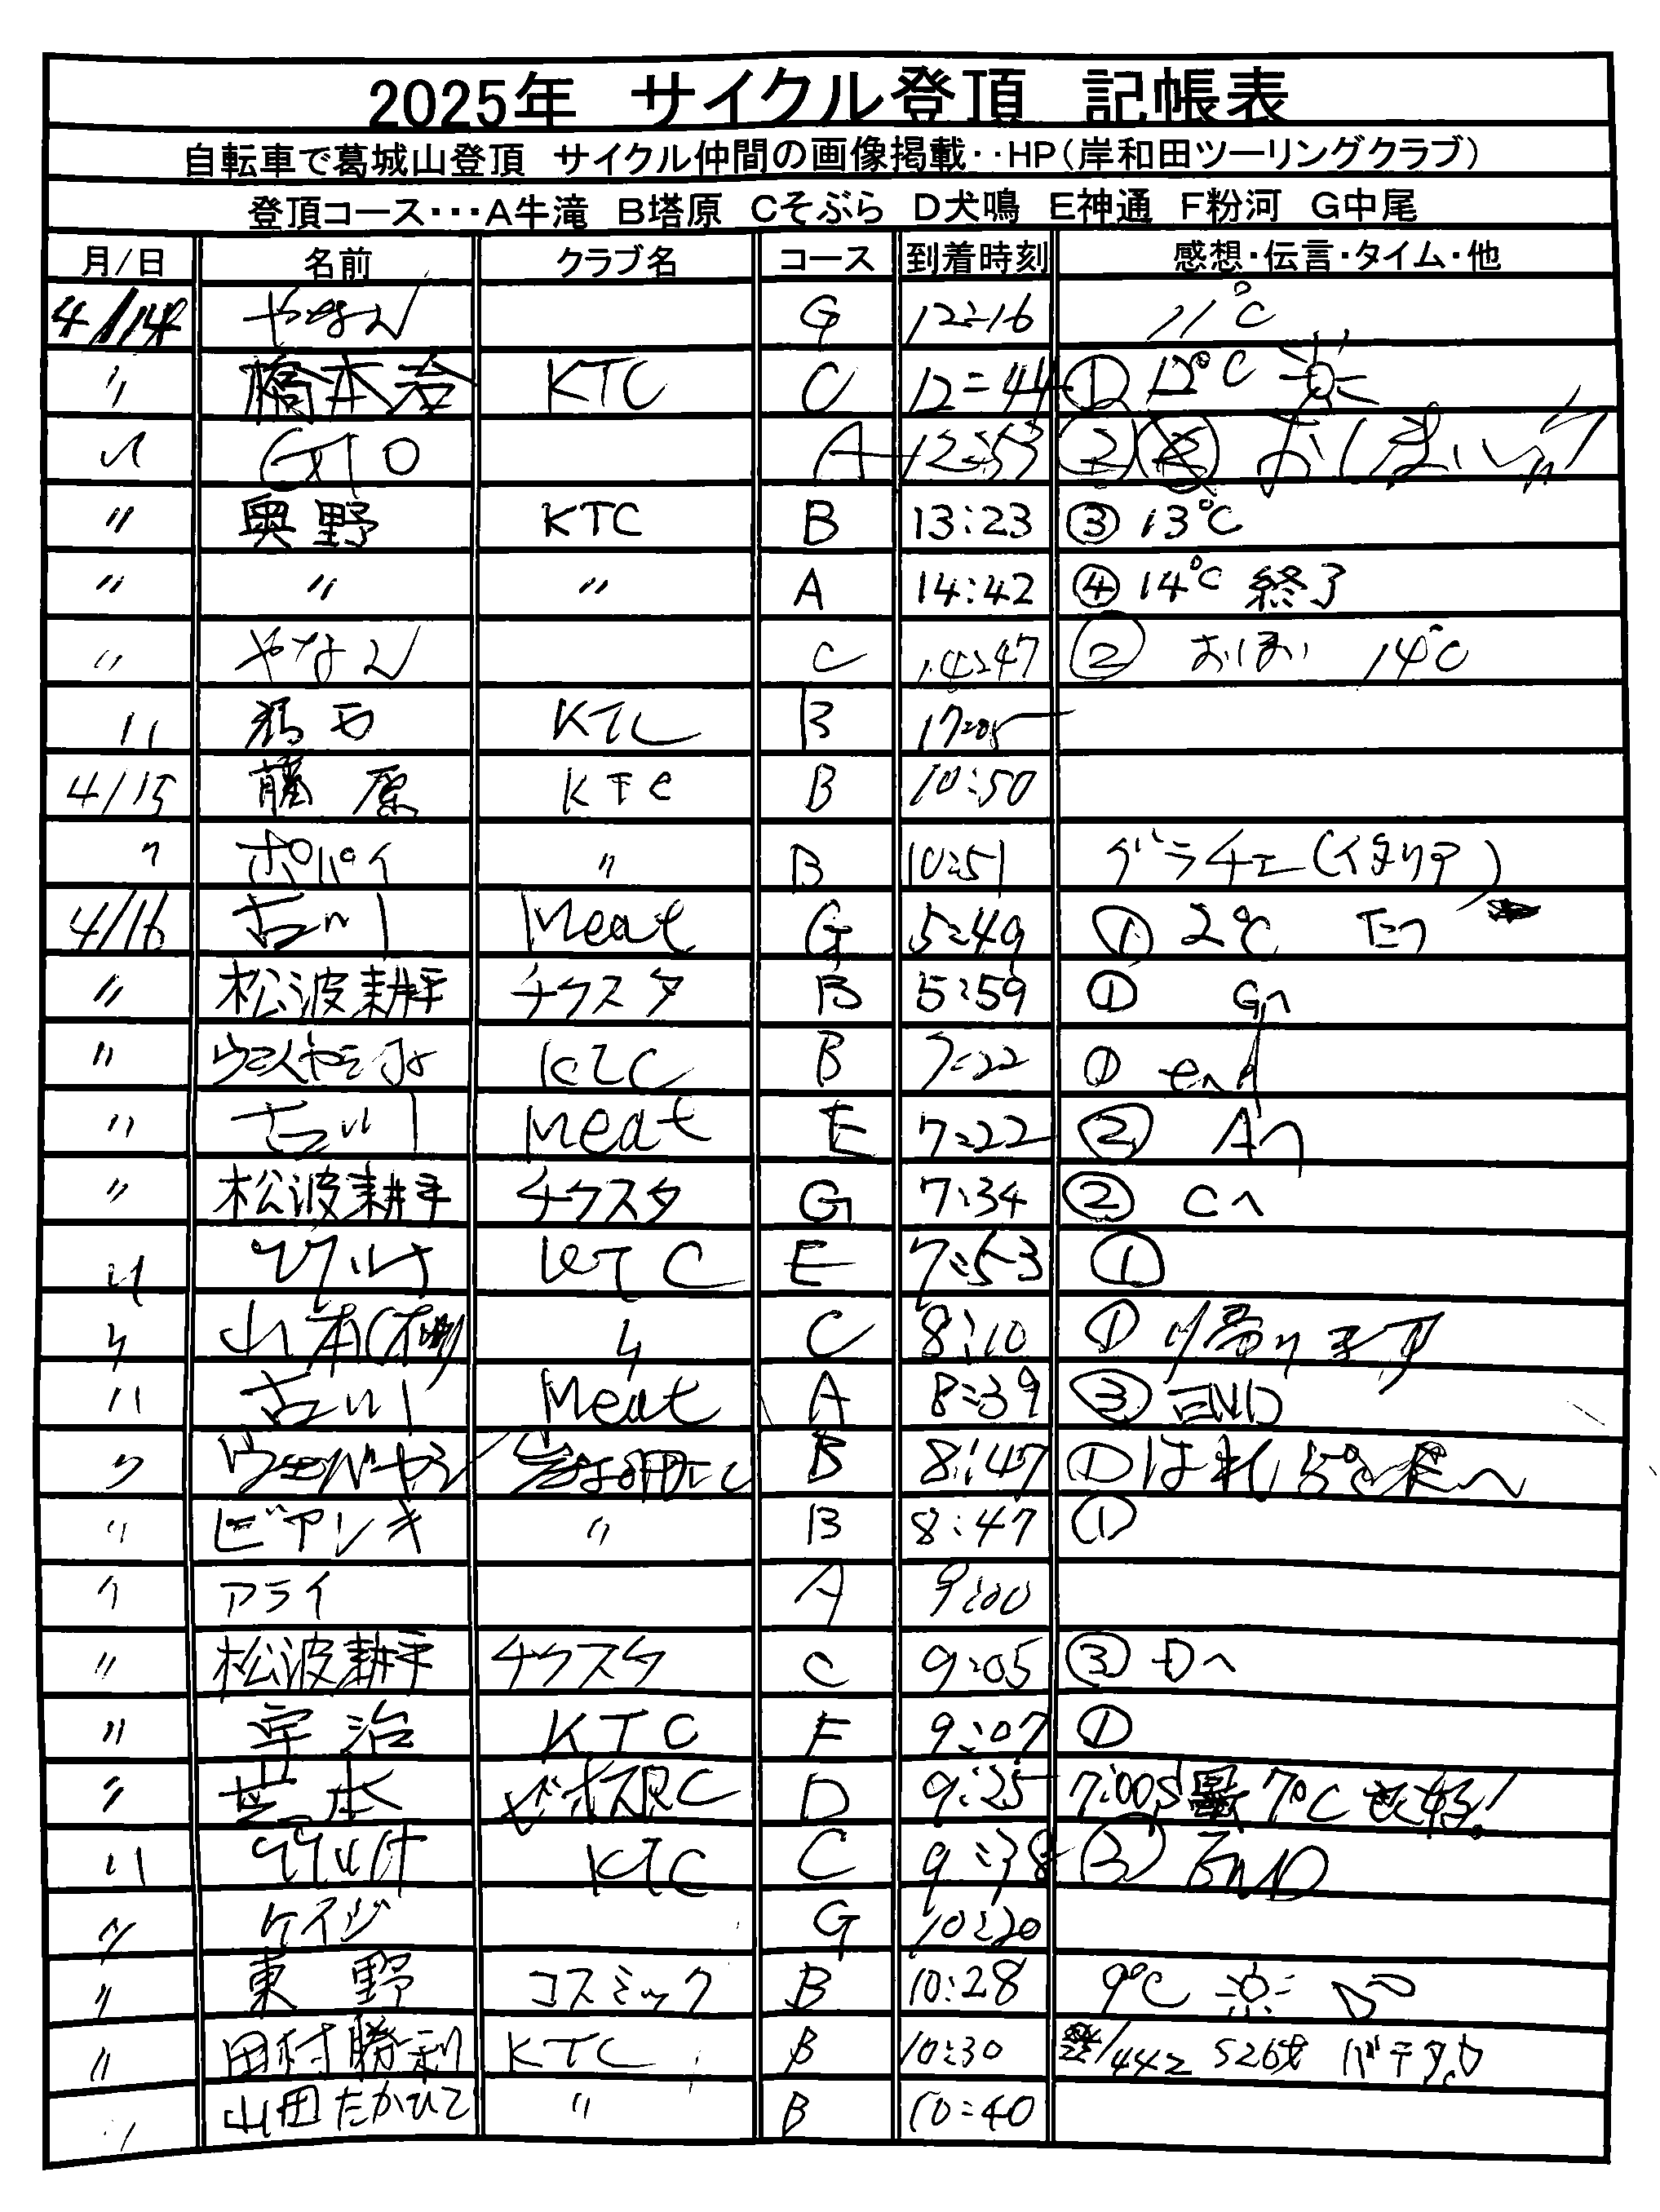 2025年 サイクル登頂 記帳表
自転車で葛城山登頂 サイクル仲間の画像掲載‥HP(岸和田ツーリングクラブ)
登頂コース・・・A牛滝 B塔原 Cそぶら D犬鳴 E神通 F粉河 G中尾
月/日 名前 クラブ名 コース 到着時刻 感想・伝言・タイム・他
4/14 やなん G 12:16 11℃
〃 橋本治 KTC C 12:44 ① 12℃
〃 GTO A 12:53 ② おしまい
〃 奥野 KTC B 13:23 ③ 13℃
〃 〃 〃 A 14:42 ④ 14℃ 終了
〃 やなん C 14:47 ② 14℃
〃 KTC B 17:05
4/15 藤原 KTC B 10:50
〃 ポパイ 〃 B 10:51 グラチェ(イタリア)
4/16 古川 Meat G 5:49 ① 2℃ Eへ
〃 松波耕平 チクスタ B 5:59 ① Gへ
〃 KTC B 7:22 ① end
〃 古川 Meat E 7:22 ② Aへ
〃 松波耕平 チクスタ G 7:34 ② Cへ
〃 KTC E 7:53 ①
〃 山本 〃 C 8:10 ① 帰ります
〃 古川 Meat A 8:39 ③ END
〃 B 8:47 ① はれ 5℃
〃 ビアンキ 〃 B 8:47 ①
〃 アライ A 9:00
〃 松波耕平 チクスタ C 9:05 ③ Dへ
〃 宇治 KTC F 9:07 ①
〃 D 9:25 7℃
〃 KTC C 9:38 END
〃 ケイジ G 10:20
〃 東野 コスミック B 10:28 9℃
〃 田村勝利 KTC B 10:30 バテタ
〃 山田たかひこ 〃 B 10:40